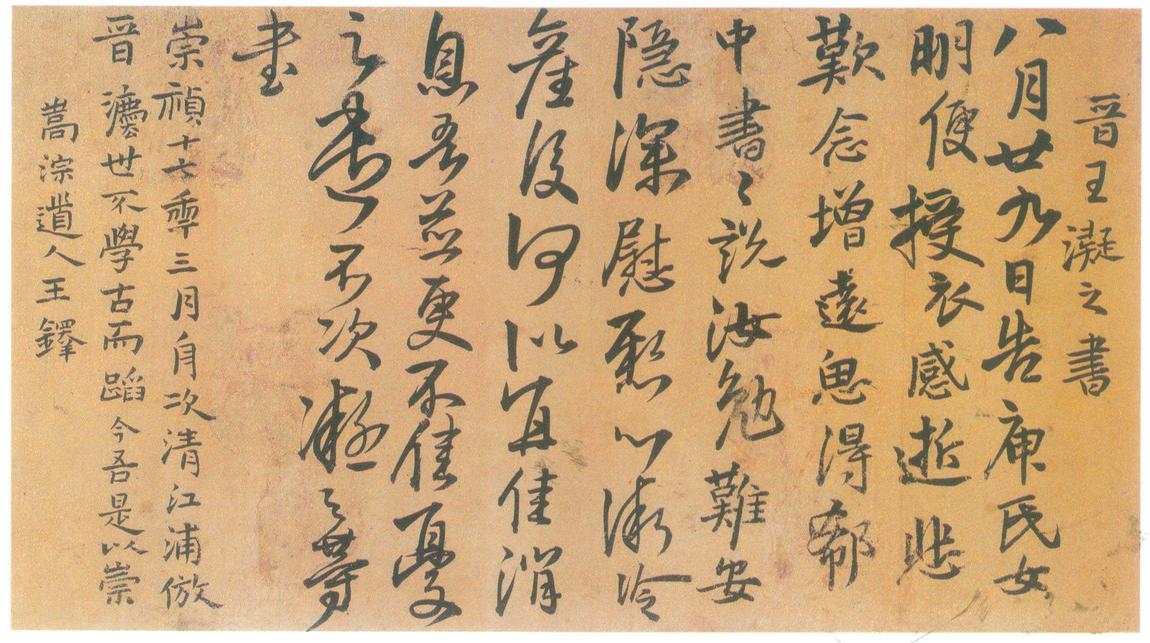 晉王凝之書
八月廿九日告庾氏女
明便授衣感逝悲
歎念增遠思得郗
中書〻説汝勉難安
隱深慰懸心漸冷
産後何似宜佳消
息吾並更不佳憂
之遣不次凝之等
書
崇禎十六季三月舟次清江浦倣
晉灋世不學古而蹈今吾是以崇
嵩淙道人王鐸